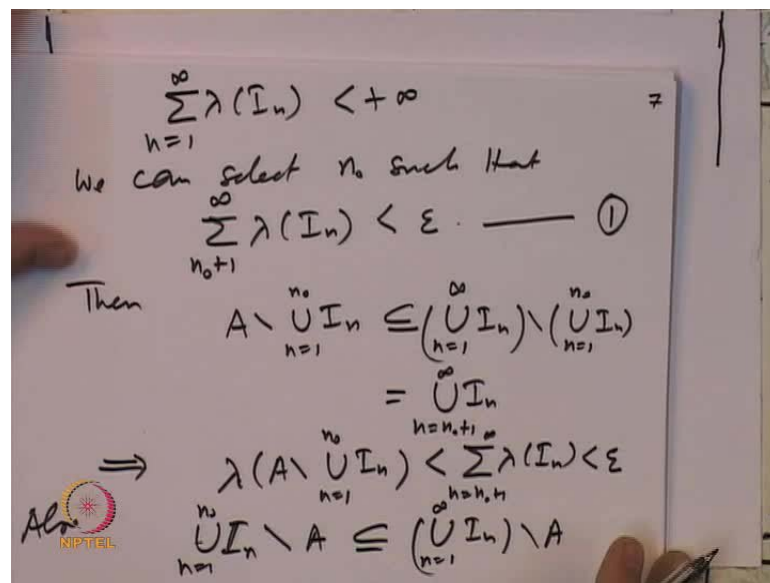 ∞
∑ λ(Iₙ) < +∞
n=1
7
We can select n₀ such that
∞
∑ λ(Iₙ) < ε. —— ①
n₀+1
Then
A \ ⋃_{n=1}^{n₀} Iₙ ⊆ (⋃_{n=1}^{∞} Iₙ) \ (⋃_{n=1}^{n₀} Iₙ)
= ⋃_{n=n₀+1}^{∞} Iₙ
⟹ λ(A \ ⋃_{n=1}^{n₀} Iₙ) < ∑_{n=n₀+1}^{∞} λ(Iₙ) < ε
Also ⋃_{n=1}^{n₀} Iₙ \ A ⊆ (⋃_{n=1}^{∞} Iₙ) \ A
NPTEL